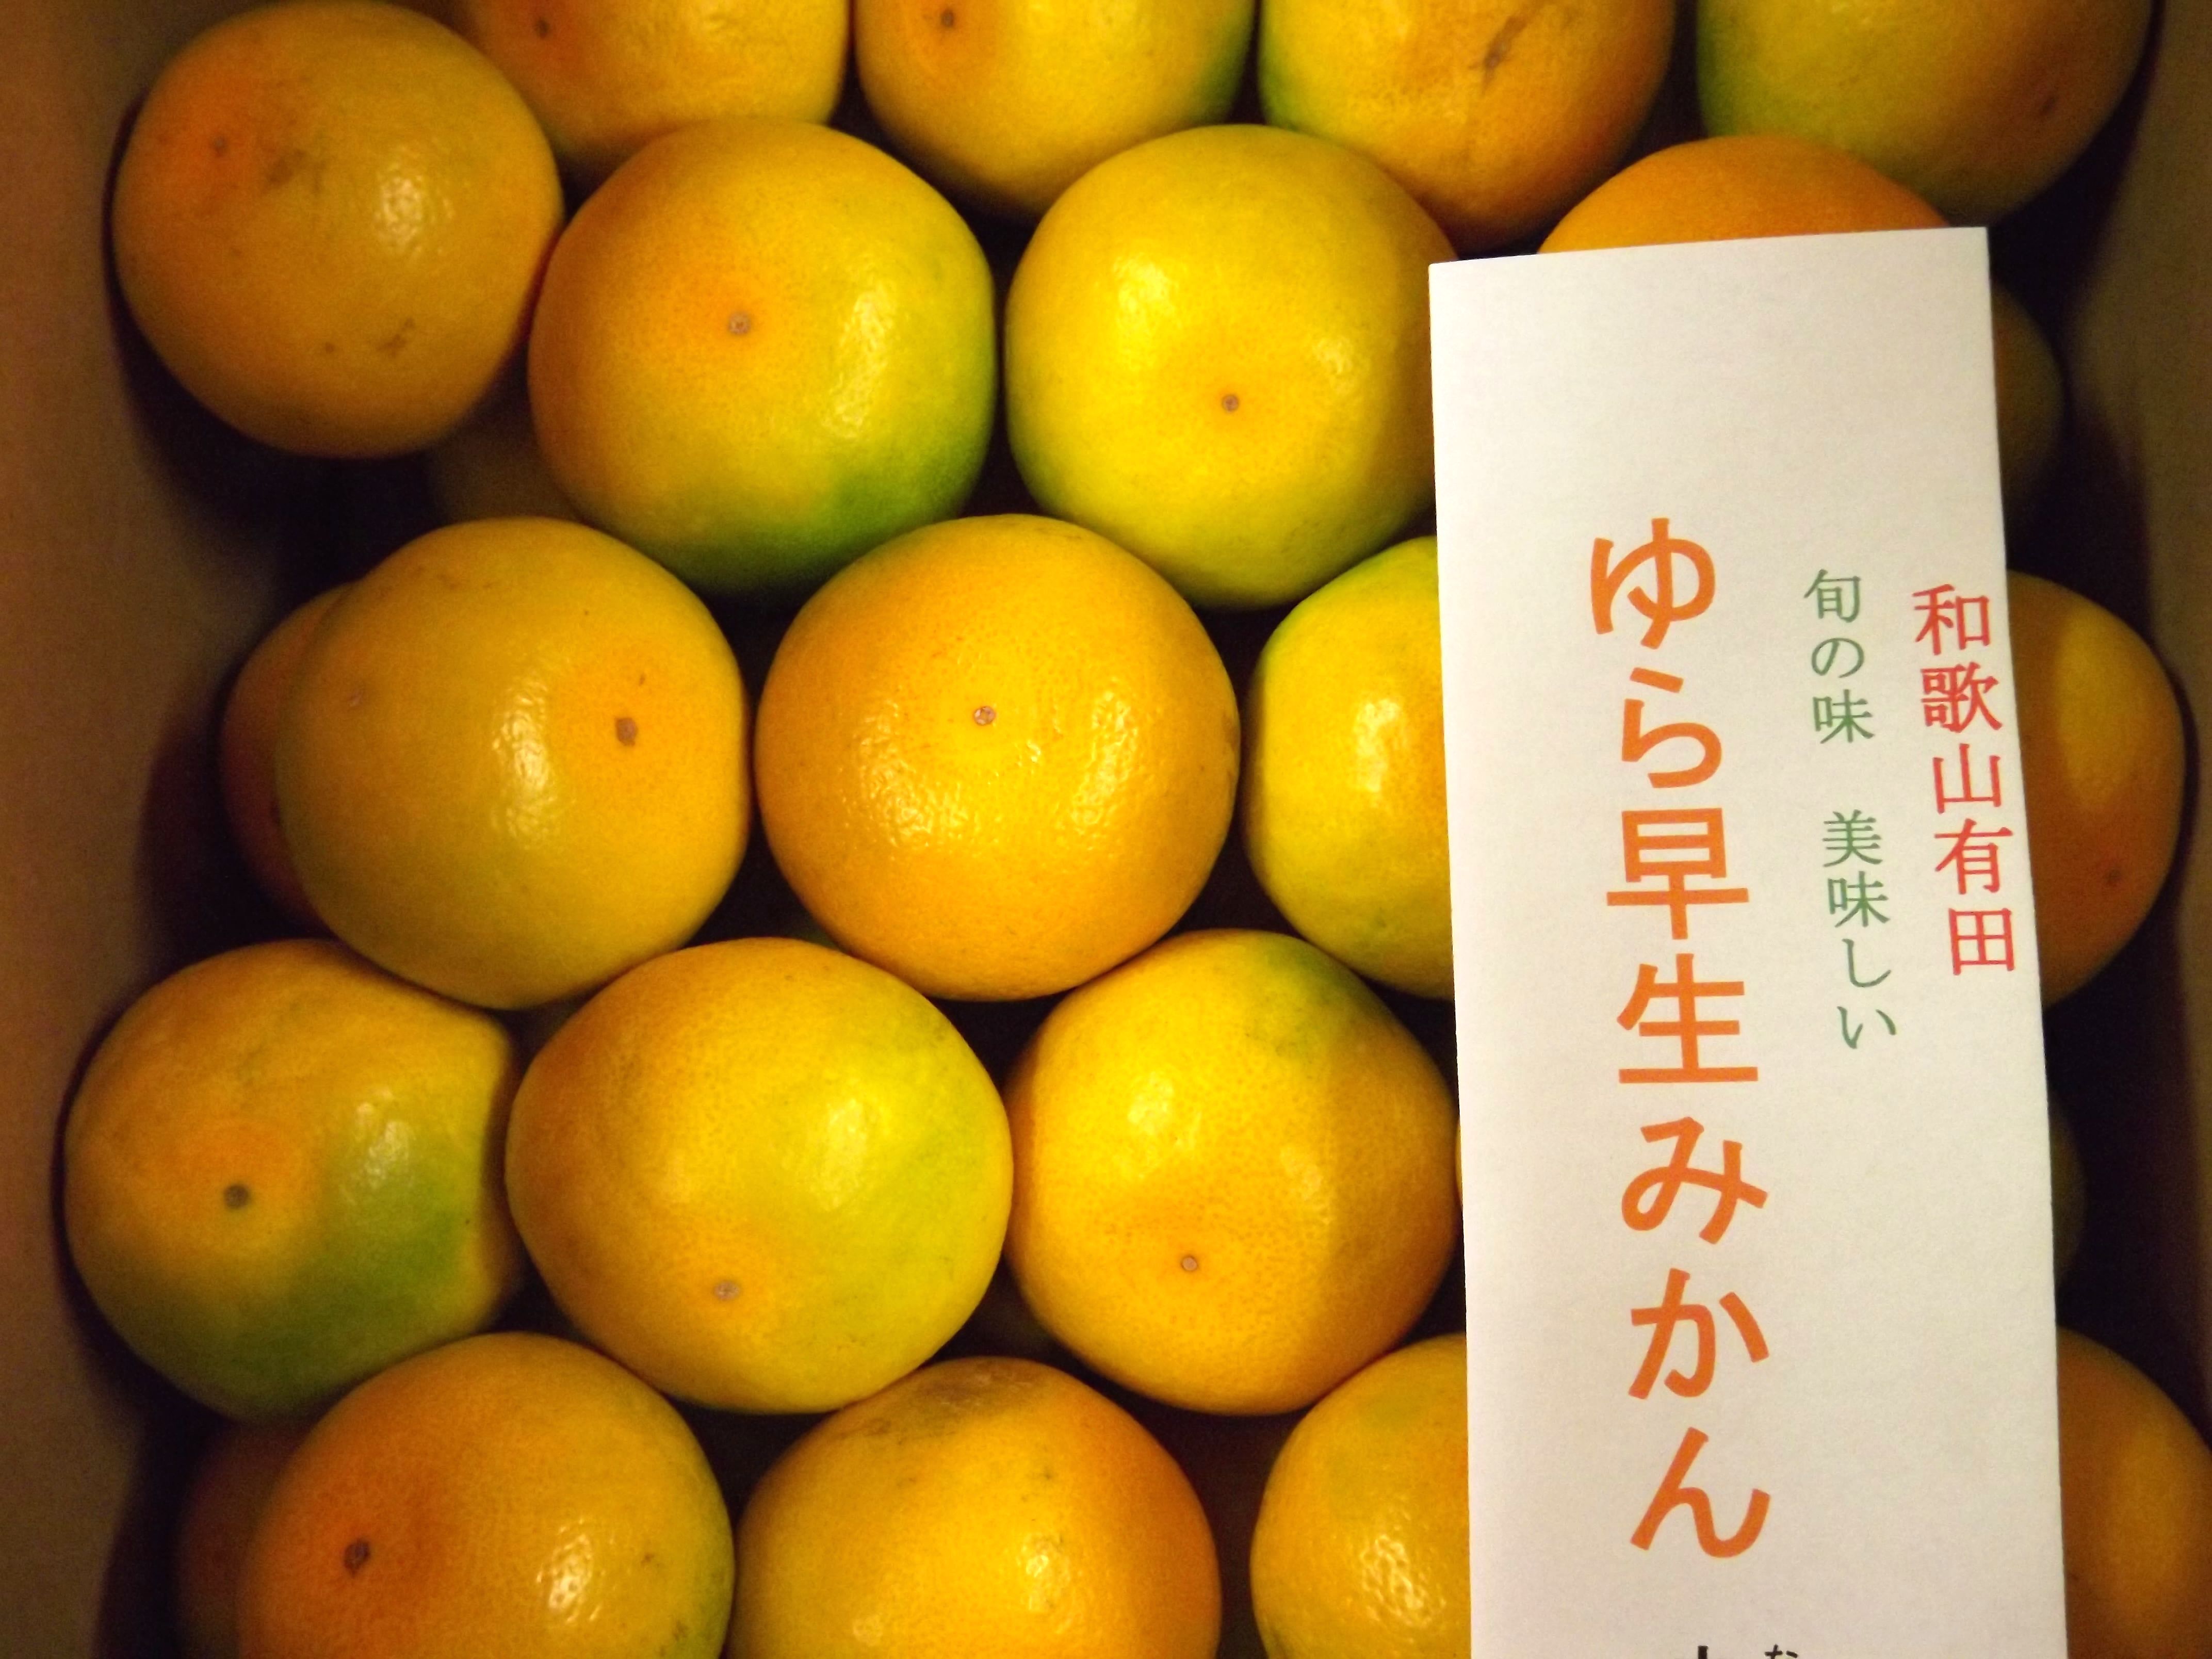 和歌山有田
旬の味　美味しい
ゆら早生みかん